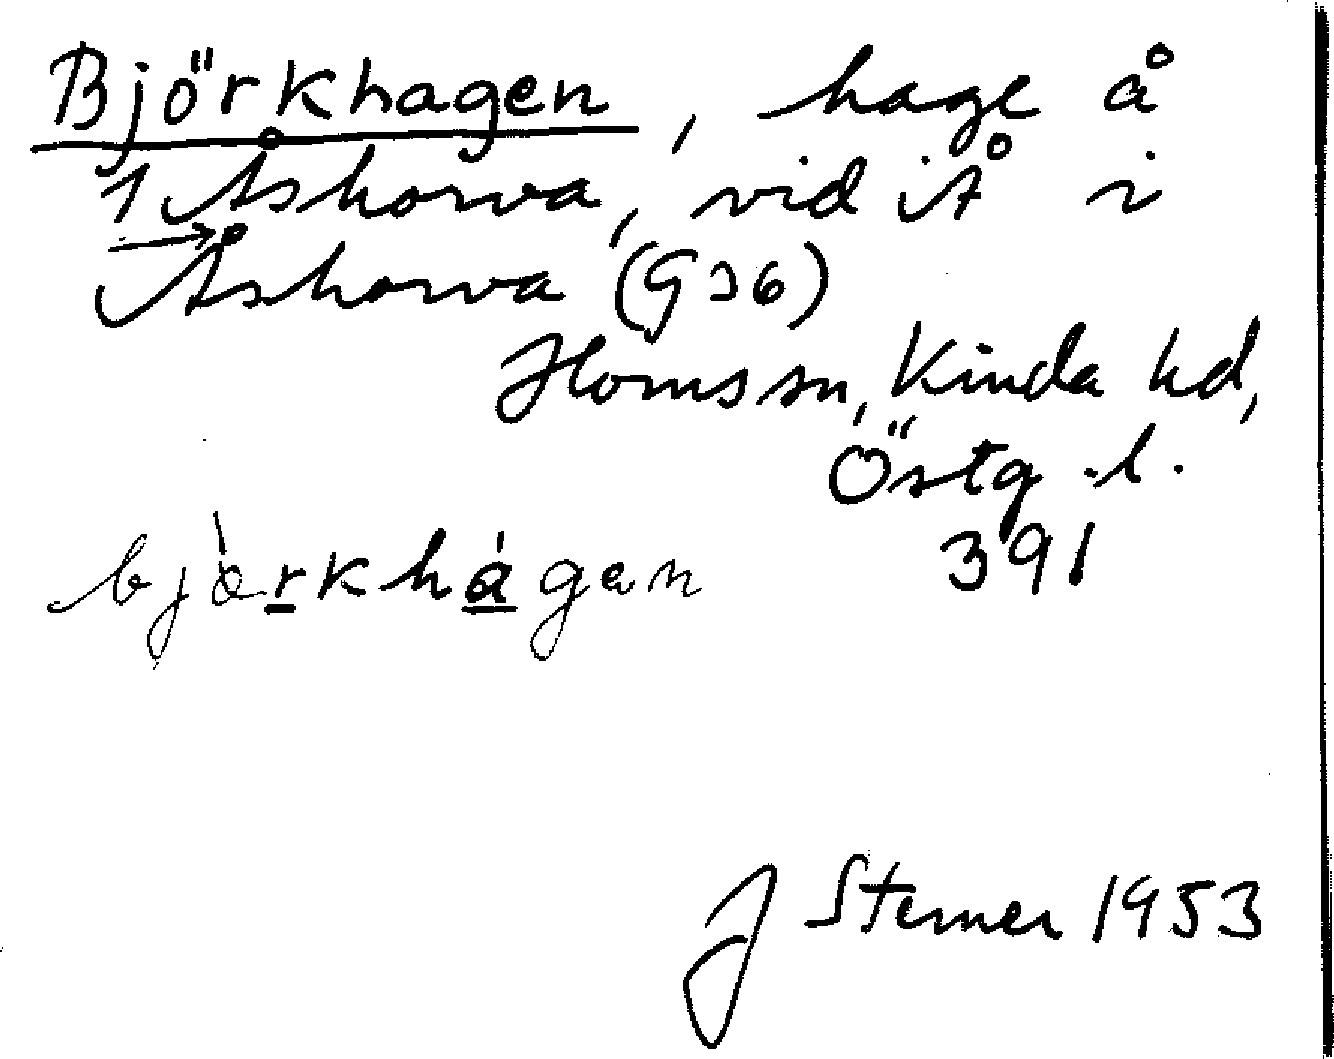 Björkhagen, hage å
1 Åskorva, vid Å i
→ Åskorva (G36)
Horns sn, Kinda hd,
Östg. l.
391
bjòrkhágen
J Sterner 1953